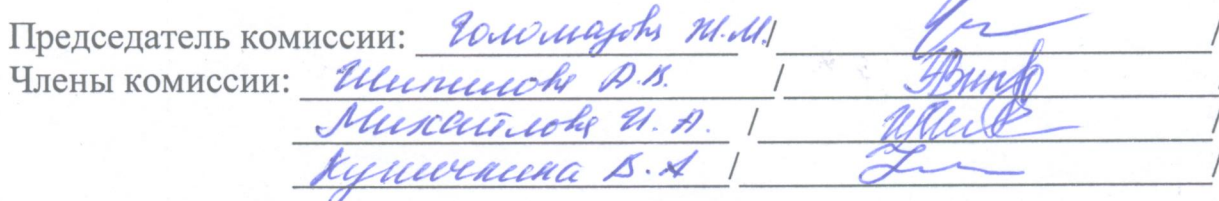 Председатель комиссии: Голомазова Ж.М./ /
Члены комиссии: Шипилова А.В. / /
Михайлова И.А. / /
В.А / /